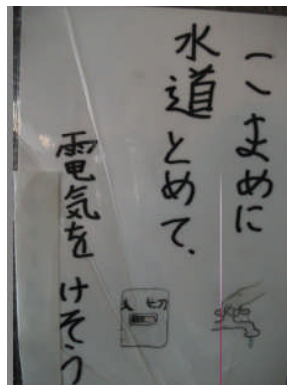 こまめに
水道とめて、
電気をけそう
入 切